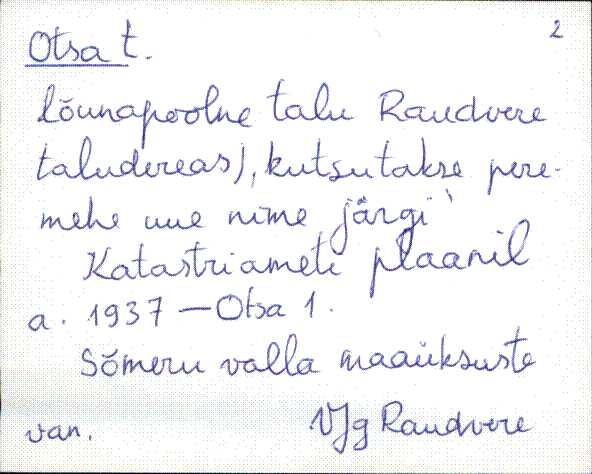 2
Otsa t.
lõunapoolne talu Raudvere
taludereas), kutsutakse pere-
mehe uue nime järgi`
Katastriameti plaanil
a. 1937 — Otsa 1.
Sõmeru valla maaüksuste
van. VJg Raudvere